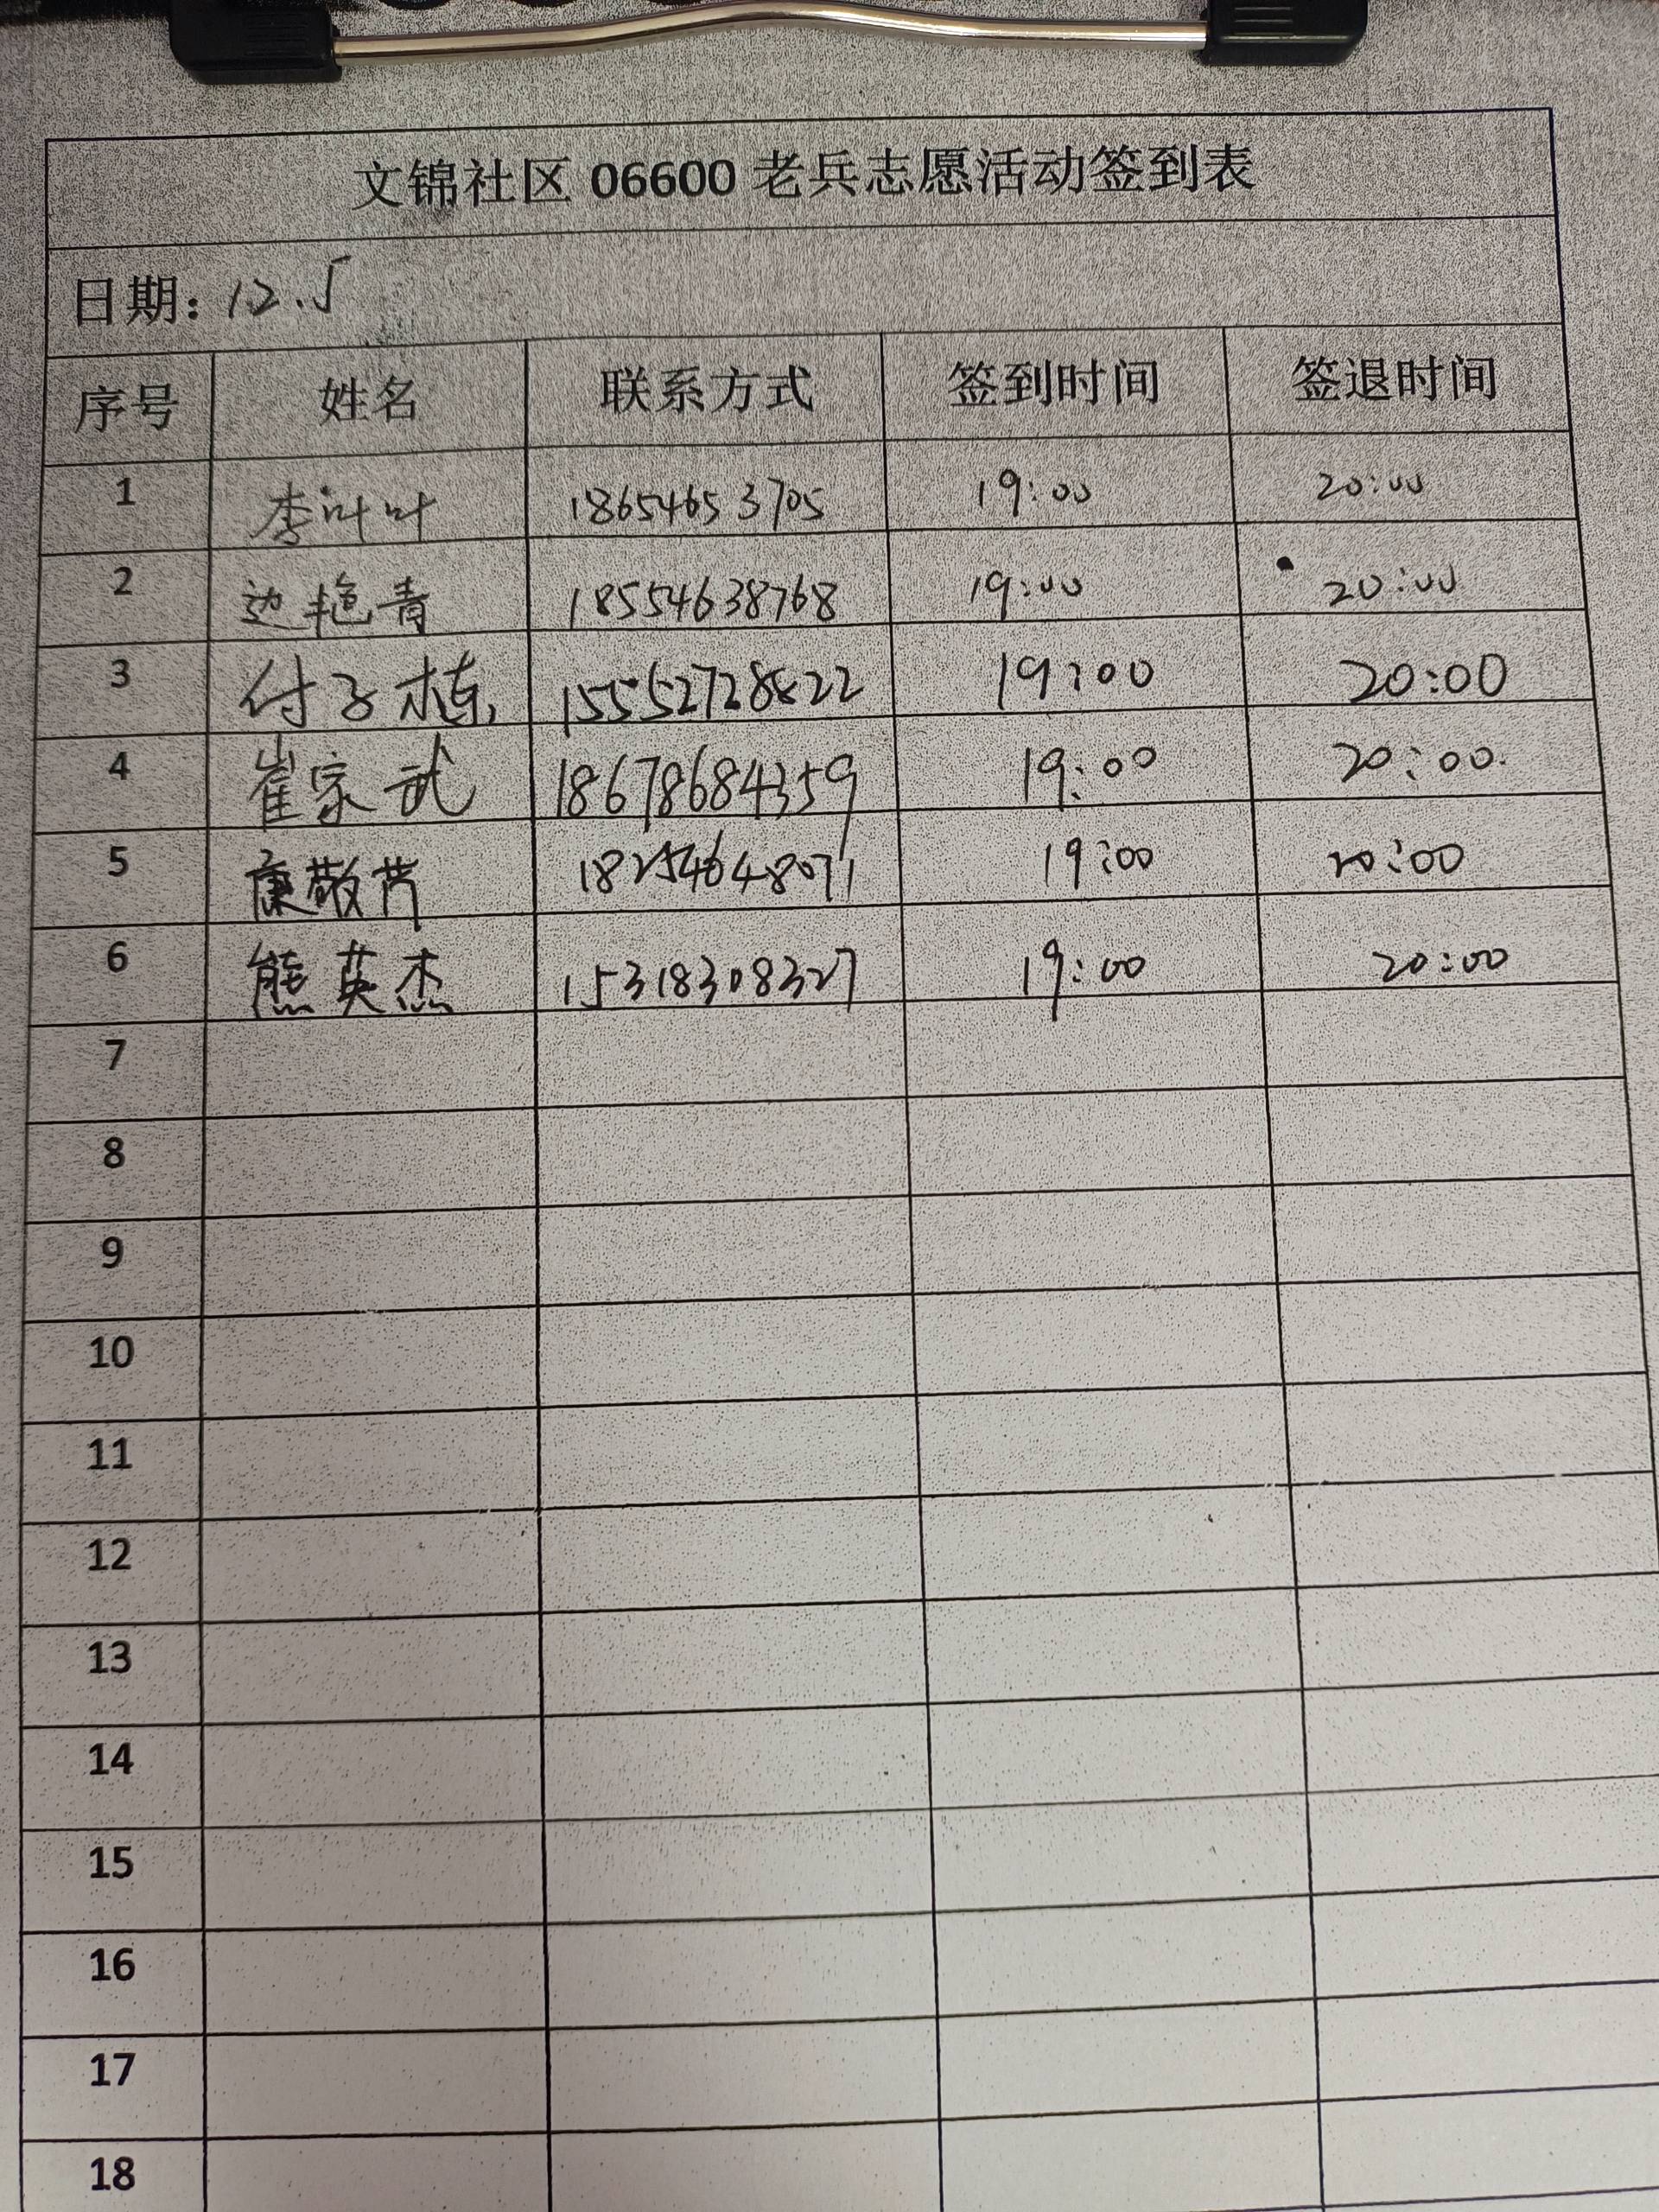 文锦社区 06600 老兵志愿活动签到表
日期: 12.5
序号 姓名 联系方式 签到时间 签退时间
1 李叶叶 18654653705 19:00 20:00
2 边艳青 18554638768 19:00 20:00
3 付子栋 15552728822 19:00 20:00
4 崔家武 18678684359 19:00 20:00.
5 康敬芹 18254648071 19:00 20:00
6 熊英杰 15318308327 19:00 20:00
7
8
9
10
11
12
13
14
15
16
17
18